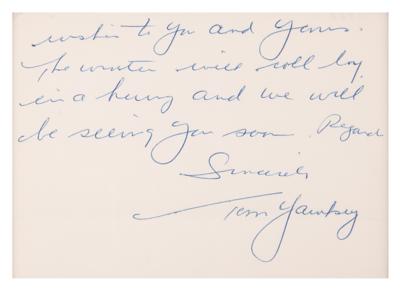 wishes to you and yours.
The winter will roll by
in a hurry and we will
be seeing you soon. Regards
Sincerely
Tom Yawkey